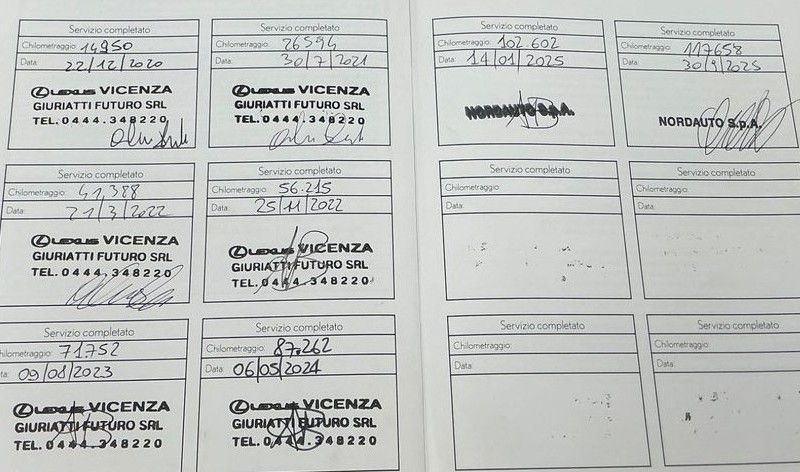 Servizio completato
Chilometraggio: 14950
Data: 22/12/2020
LEXUS VICENZA
GIURIATTI FUTURO SRL
TEL. 0444.348220
Servizio completato
Chilometraggio: 26594
Data: 30/7/2021
LEXUS VICENZA
GIURIATTI FUTURO SRL
TEL. 0444.348220
Servizio completato
Chilometraggio: 41,388
Data: 21/3/2022
LEXUS VICENZA
GIURIATTI FUTURO SRL
TEL. 0444.348220
Servizio completato
Chilometraggio: 56.215
Data: 25/11/2022
LEXUS VICENZA
GIURIATTI FUTURO SRL
TEL. 0444.348220
Servizio completato
hilometraggio: 71.752
ata: 09/08/2023
LEXUS VICENZA
GIURIATTI FUTURO SRL
TEL. 0444.348220
Servizio completato
Chilometraggio: 87.262
ata: 06/05/2024
LEXUS VICENZA
GIURIATTI FUTURO SRL
TEL. 0444.348220
Servizio completato
Chilometraggio: 102.602
Data: 14/01/2025
NORDAUTO S.p.A.
Servizio completato
Chilometraggio: 117658
Data: 30/9/2025
NORDAUTO S.p.A.
Servizio completato
Chilometraggio:
Data:
Servizio completato
Chilometraggio:
Data:
Servizio completato
Chilometraggio:
Data:
Servizio completato
Chilometraggio:
Data: